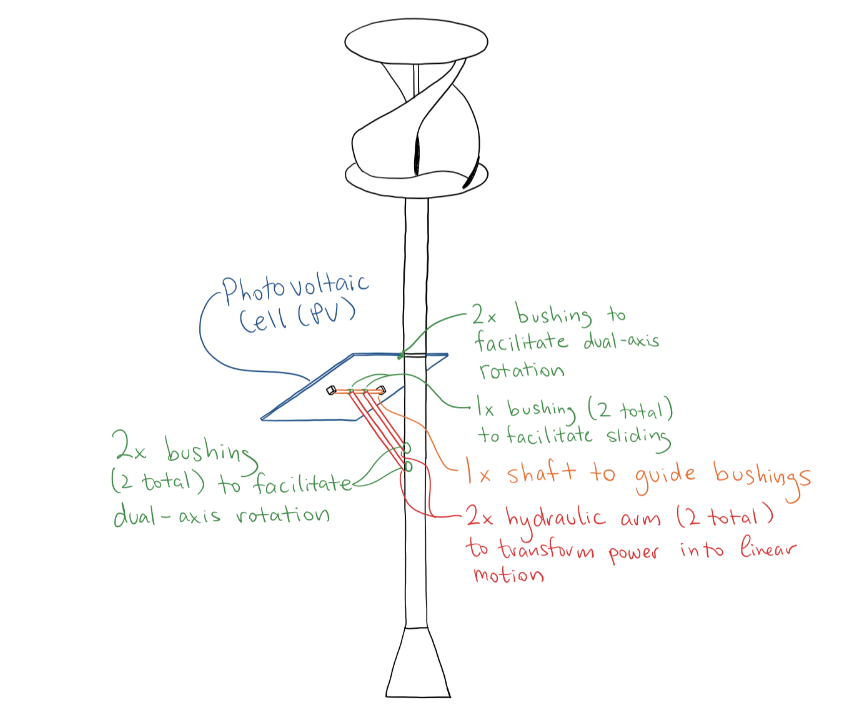 Photovoltaic
Cell (PV)
2x bushing to
facilitate dual-axis
rotation
1x bushing (2 total)
to facilitate sliding
2x bushing
(2 total) to facilitate
dual-axis rotation
1x shaft to guide bushings
2x hydraulic arm (2 total)
to transform power into linear
motion